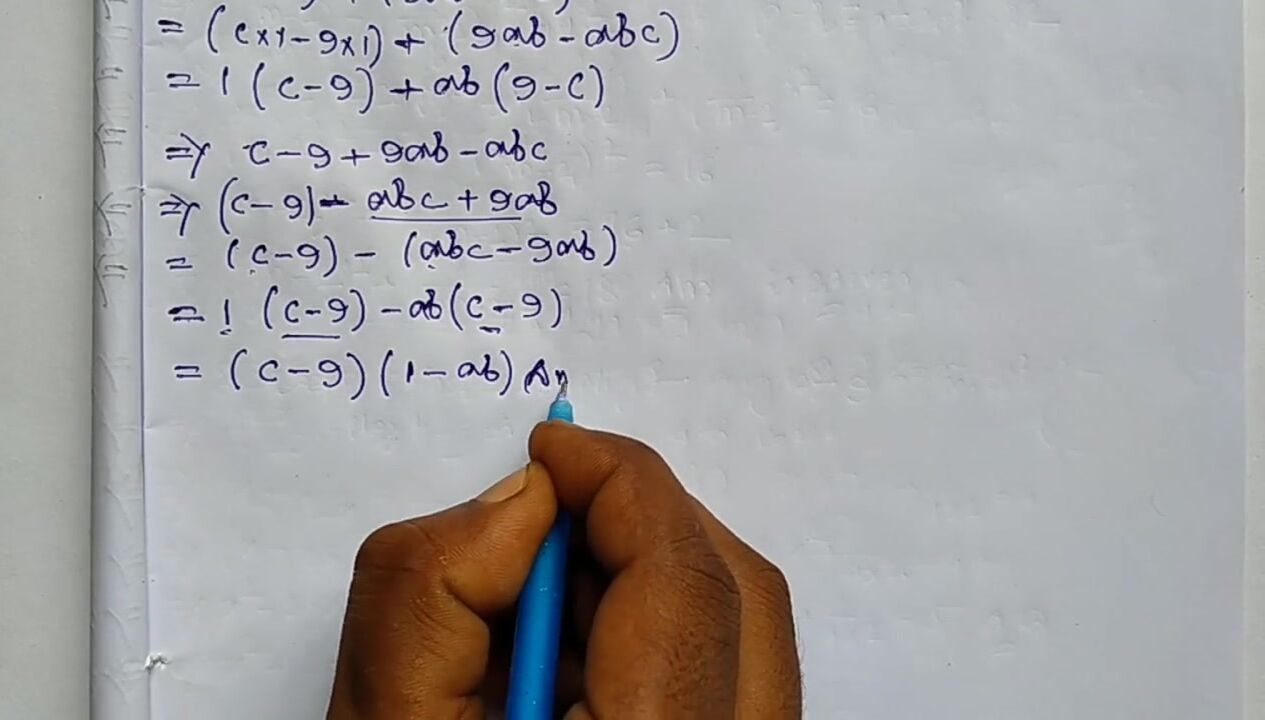 = (c×1-9×1) + (9ab-abc)
= 1 (c-9) + ab (9-c)
⇒ c-9+9ab-abc
⇒ (c-9)- abc + 9ab
= (c-9) - (abc-9ab)
= 1 (c-9) -ab(c-9)
= (c-9) (1-ab) An